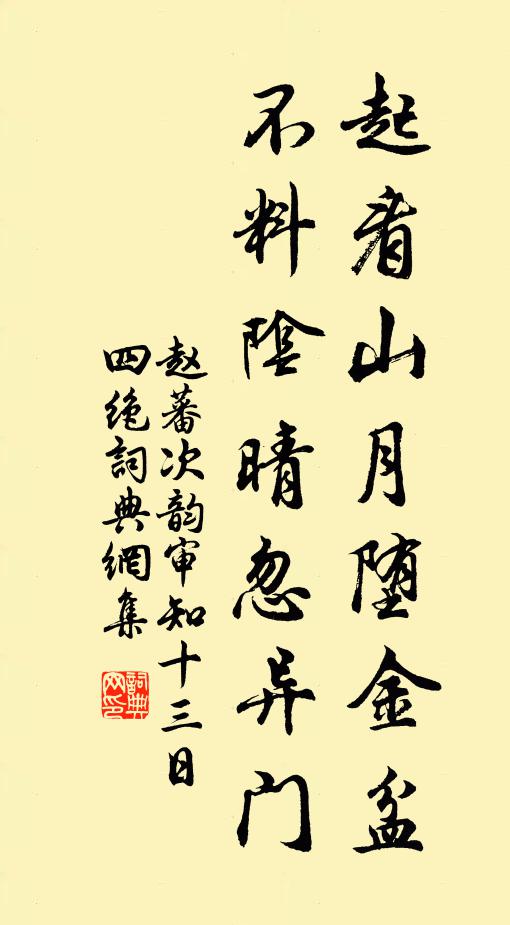 起看山月堕金盆
不料陰晴忽异门
赵蕃次韵审知十三日
四绝詞典網集
詞典
网印